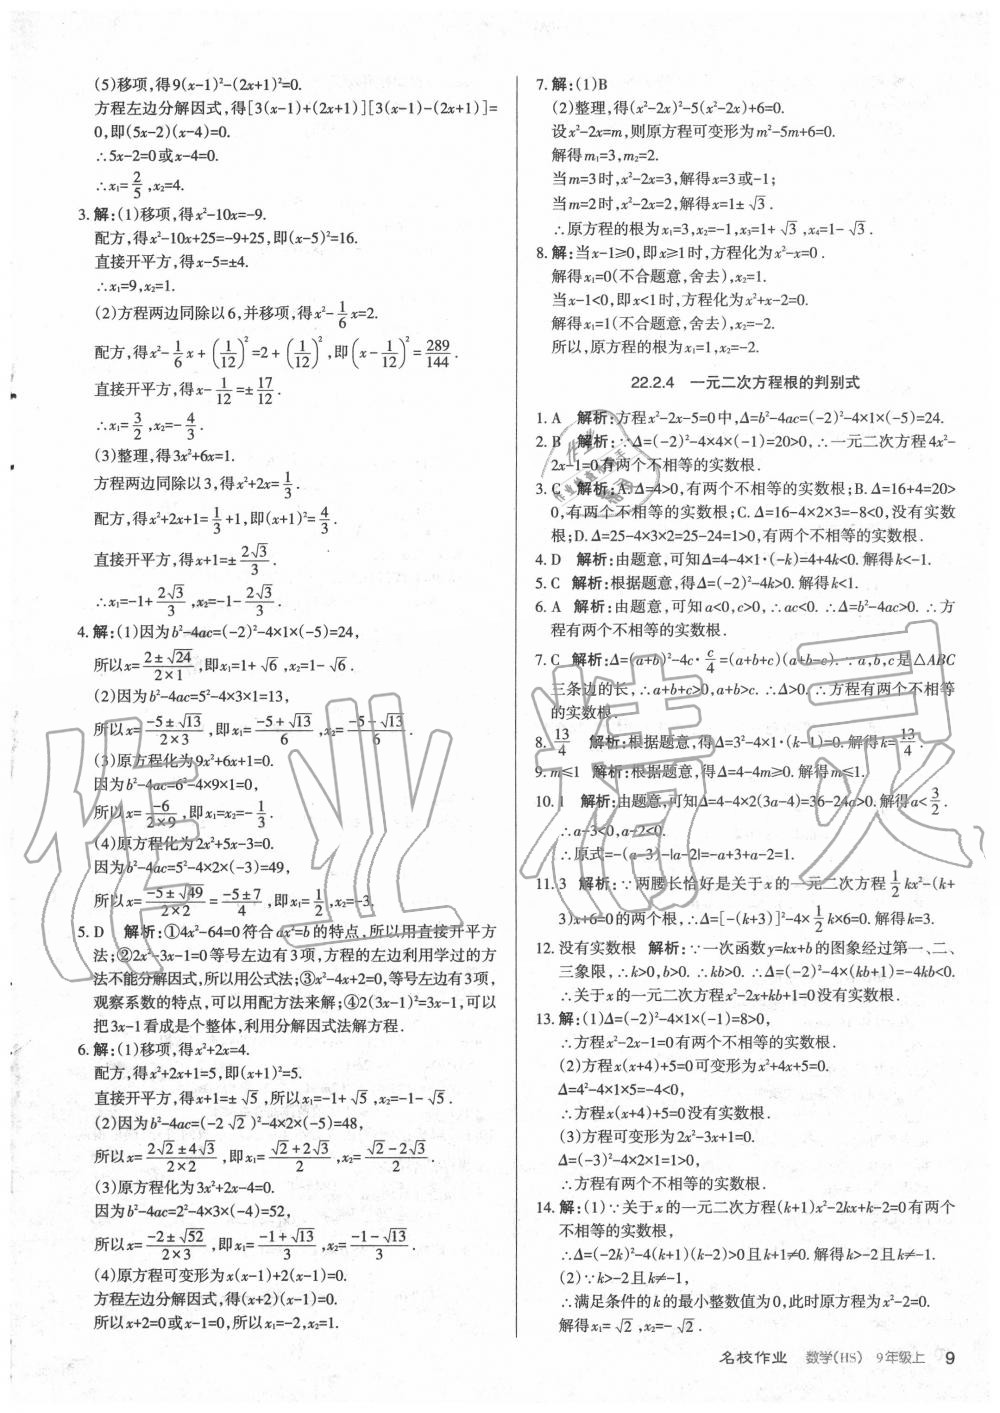 (5)移项,得9(x-1)²-(2x+1)²=0.
方程左边分解因式,得[3(x-1)+(2x+1)][3(x-1)-(2x+1)]=
0,即(5x-2)(x-4)=0.
∴5x-2=0或x-4=0.
∴x₁=2/5,x₂=4.
3.解:(1)移项,得x²-10x=-9.
配方,得x²-10x+25=-9+25,即(x-5)²=16.
直接开平方,得x-5=±4.
∴x₁=9,x₂=1.
(2)方程两边同除以6,并移项,得x²-1/6x=2.
配方,得x²-1/6x+(1/12)²=2+(1/12)²,即(x-1/12)²=289/144.
直接开平方,得x-1/12=±17/12.
∴x₁=3/2,x₂=-4/3.
(3)整理,得3x²+6x=1.
方程两边同除以3,得x²+2x=1/3.
配方,得x²+2x+1=1/3+1,即(x+1)²=4/3.
直接开平方,得x+1=±2√3/3.
∴x₁=-1+2√3/3,x₂=-1-2√3/3.
4.解:(1)因为b²-4ac=(-2)²-4×1×(-5)=24,
所以x=(2±√24)/(2×1),即x₁=1+√6,x₂=1-√6.
(2)因为b²-4ac=5²-4×3×1=13,
所以x=(-5±√13)/(2×3),即x₁=(-5+√13)/6,x₂=(-5-√13)/6.
(3)原方程化为9x²+6x+1=0.
因为b²-4ac=6²-4×9×1=0,
所以x=-6/(2×9),即x₁=x₂=-1/3.
(4)原方程化为2x²+5x-3=0.
因为b²-4ac=5²-4×2×(-3)=49,
所以x=(-5±√49)/(2×2)=(-5±7)/4,即x₁=1/2,x₂=-3.
5.D 解析:①4x²-64=0符合ax²=b的特点,所以用直接开平方
法;②2x²-3x-1=0等号左边有3项,方程的左边利用学过的方
法不能分解因式,所以用公式法;③x²-4x+2=0,等号左边有3项,
观察系数的特点,可以用配方法来解;④2(3x-1)²=3x-1,可以
把3x-1看成是个整体,利用分解因式法解方程.
6.解:(1)移项,得x²+2x=4.
配方,得x²+2x+1=5,即(x+1)²=5.
直接开平方,得x+1=±√5,所以x₁=-1+√5,x₂=-1-√5.
(2)因为b²-4ac=(-2√2)²-4×2×(-5)=48,
所以x=(2√2±4√3)/(2×2),即x₁=(√2+2√3)/2,x₂=(√2-2√3)/2.
(3)原方程化为3x²+2x-4=0.
因为b²-4ac=2²-4×3×(-4)=52,
所以x=(-2±√52)/(2×3),即x₁=(-1+√13)/3,x₂=(-1-√13)/3.
(4)原方程可变形为x(x-1)+2(x-1)=0.
方程左边分解因式,得(x+2)(x-1)=0.
所以x+2=0或x-1=0,所以x₁=-2,x₂=1.
7.解:(1)B
(2)整理,得(x²-2x)²-5(x²-2x)+6=0.
设x²-2x=m,则原方程可变形为m²-5m+6=0.
解得m₁=3,m₂=2.
当m=3时,x²-2x=3,解得x=3或-1;
当m=2时,x²-2x=2,解得x=1±√3.
∴原方程的根为x₁=3,x₂=-1,x₃=1+√3,x₄=1-√3.
8.解:当x-1≥0,即x≥1时,方程化为x²-x=0.
解得x₁=0(不合题意,舍去),x₂=1.
当x-1<0,即x<1时,方程化为x²+x-2=0.
解得x₁=1(不合题意,舍去),x₂=-2.
所以,原方程的根为x₁=1,x₂=-2.
22.2.4 一元二次方程根的判别式
1.A 解析:方程x²-2x-5=0中,Δ=b²-4ac=(-2)²-4×1×(-5)=24.
2.B 解析:∵Δ=(-2)²-4×4×(-1)=20>0,∴一元二次方程4x²-
2x-1=0有两个不相等的实数根.
3.C 解析:A.Δ=4>0,有两个不相等的实数根;B.Δ=16+4=20>
0,有两个不相等的实数根;C.Δ=16-4×2×3=-8<0,没有实数
根;D.Δ=25-4×3×2=25-24=1>0,有两个不相等的实数根.
4.D 解析:由题意,可知Δ=4-4×1·(-k)=4+4k<0.解得k<-1.
5.C 解析:根据题意,得Δ=(-2)²-4k>0.解得k<1.
6.A 解析:由题意,可知a<0,c>0,∴ac<0.∴Δ=b²-4ac>0.∴方
程有两个不相等的实数根.
7.C 解析:Δ=(a+b)²-4c·c/4=(a+b+c)(a+b-c).∵a,b,c是△ABC
三条边的长,∴a+b+c>0,a+b>c.∴Δ>0.∴方程有两个不相等
的实数根.
8.13/4 解析:根据题意,得Δ=3²-4×1·(k-1)=0.解得k=13/4.
9.m≤1 解析:根据题意,得Δ=4-4m≥0.解得m≤1.
10.1 解析:由题意,可知Δ=4-4×2(3a-4)=36-24a>0.解得a<3/2.
∴a-3<0,a-2<0.
∴原式=-(a-3)-|a-2|=-a+3+a-2=1.
11.3 解析:∵两腰长恰好是关于x的一元二次方程1/2kx²-(k+
3)x+6=0的两个根,∴Δ=[-(k+3)]²-4×1/2k×6=0.解得k=3.
12.没有实数根 解析:∵一次函数y=kx+b的图象经过第一、二、
三象限,∴k>0,b>0.∴kb>0.∴Δ=(-2)²-4×(kb+1)=-4kb<0.
∴关于x的一元二次方程x²-2x+kb+1=0没有实数根.
13.解:(1)Δ=(-2)²-4×1×(-1)=8>0,
∴方程x²-2x-1=0有两个不相等的实数根.
(2)方程x(x+4)+5=0可变形为x²+4x+5=0.
Δ=4²-4×1×5=-4<0,
∴方程x(x+4)+5=0没有实数根.
(3)方程可变形为2x²-3x+1=0.
Δ=(-3)²-4×2×1=1>0,
∴方程有两个不相等的实数根.
14.解:(1)∵关于x的一元二次方程(k+1)x²-2kx+k-2=0有两个
不相等的实数根,
∴Δ=(-2k)²-4(k+1)(k-2)>0且k+1≠0.解得k>-2且k≠-1.
(2)∵k>-2且k≠-1,
∴满足条件的k的最小整数值为0,此时原方程为x²-2=0.
解得x₁=√2,x₂=-√2.
名校作业 数学(HS) 9年级上 9
作业精灵